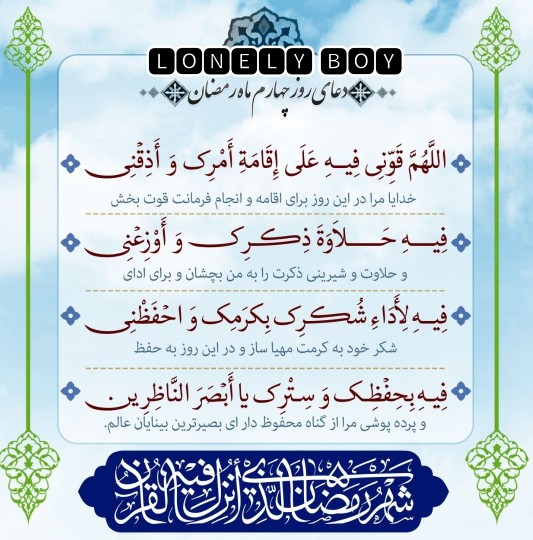 LONELY BOY
دعای روز چهارم ماه رمضان
اللَّهُمَّ قَوِّنِی فِیهِ عَلَى إِقَامَةِ أَمْرِک وَ أَذِقْنِی
خدایا مرا در این روز برای اقامه و انجام فرمانت قوت بخش
فِیهِ حَلاَوَةَ ذِکْرِک وَ أَوْزِعْنِی
و حلاوت و شیرینی ذکرت را به من بچشان و برای ادای
فِیهِ لِأَدَاءِ شُکْرِک بِکَرَمِک وَ احْفَظْنِی
شکر خود به کرمت مهیا ساز و در این روز به حفظ
فِیهِ بِحِفْظِک وَ سِتْرِک یا أَبْصَرَ النَّاظِرِین
و پرده پوشی مرا از گناه محفوظ دار ای بصیرترین بینایان عالم.
شهر رمضان الذی أنزل فیه القرآن